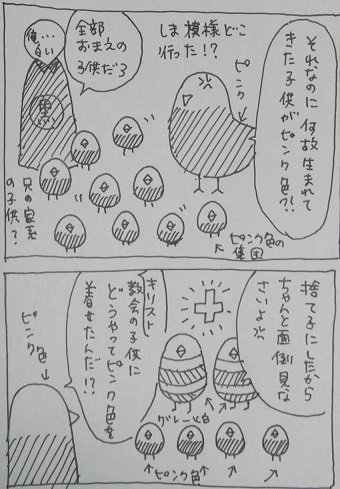 それなのに何故生まれて
きた子供がピンク色?!
ピンク
しま模様どこ
行った!?
全部
おまえの
子供だろ
俺…
白い
黒
ピンク色の
集団
兄の家系
の子供?
捨て子にしたから
ちゃんと面倒見な
さいよ
キリスト
教会の子供に
どうやってピンク色を
着せたんだ!?
グレーと白
ピンク色
ピンク色